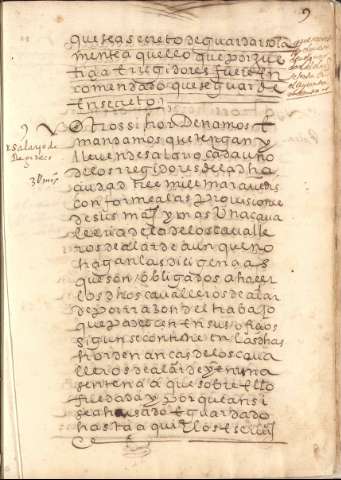 9
que sea secreto de guardar sola
mente aquello que por jus
tiçia E rregidores fuere En
comendado que se guarde
En secreto
9 Otrossi hordenamos E
mandamos que tengan y
lleven de salario cada uno
de los rregidores de la dha
ciudad tres mill maravedis
conforme a las provisiones
de sus mag y mas una cava
lleria de la de los cavalle
ros de alarde aunque no
hagan las diligençias
que son obligados a hazer
los dhos cavalleros de alar
de por rrazon del trabajo
que padecen en sus ofiçios
sigun se contiene en las dhas
hordenanças de los cava
lleros de alarde y en una
sentençia que sobre ello
fue dada y porque ansi
se a husado E guardado
hasta aqui
x Salario de
3U mrs